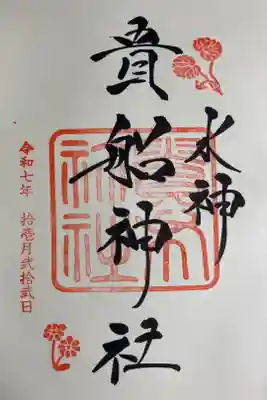 水神
貴船神社
令和七年 拾壱月弐拾弐日